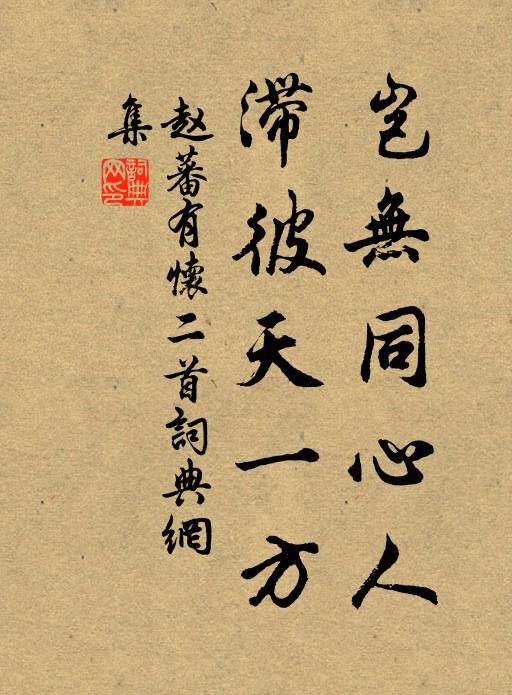 豈無同心人
滯彼天一方
赵蕃有懷二首詞典網
集
詞典
网印